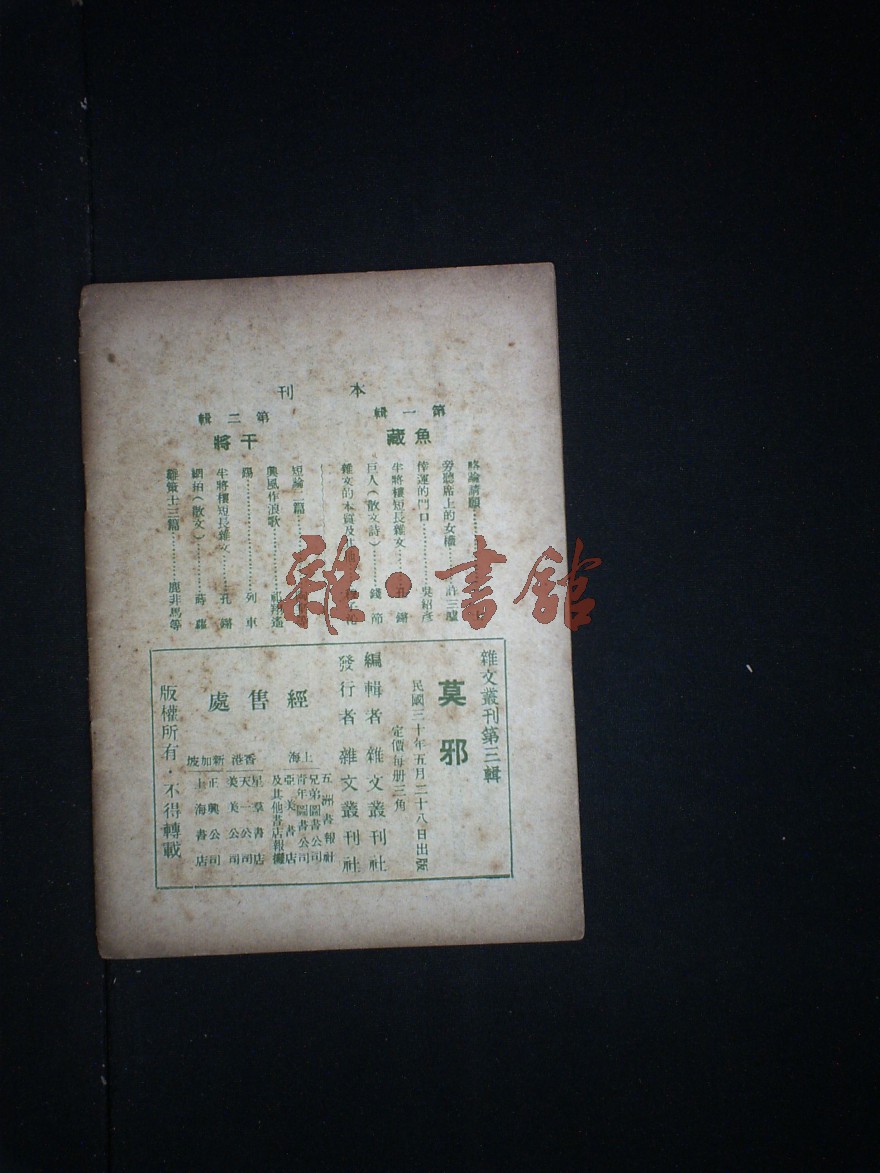 本刊
第一輯
魚藏
略論請願
旁聽席上的女權……許三驢
倖運的門口……吳紹彥
半將樓短長雜文……孔鏘
巨人(散文詩)……錢節
雜文的本質及
第二輯
干將
短論二篇
興風作浪歌……祖翔遙
踢……列車
半將樓短長雜文……孔鏘
網拍(散文)……蔣蘿
雞策士三篇……鹿非馬等
雜·書館
雜文叢刊第三輯
莫邪
民國三十年五月二十八日出版
定價每册三角
編輯者 雜文叢刊社
發行者 雜文叢刊社
經售處
上海
五洲書報社
兄弟圖書公司
青年圖書公司
亞美書店
及其他書店報攤
香港
星羣書店
天一公司
美美公司
新加坡
正興公司
上海書店
版權所有·不得轉載